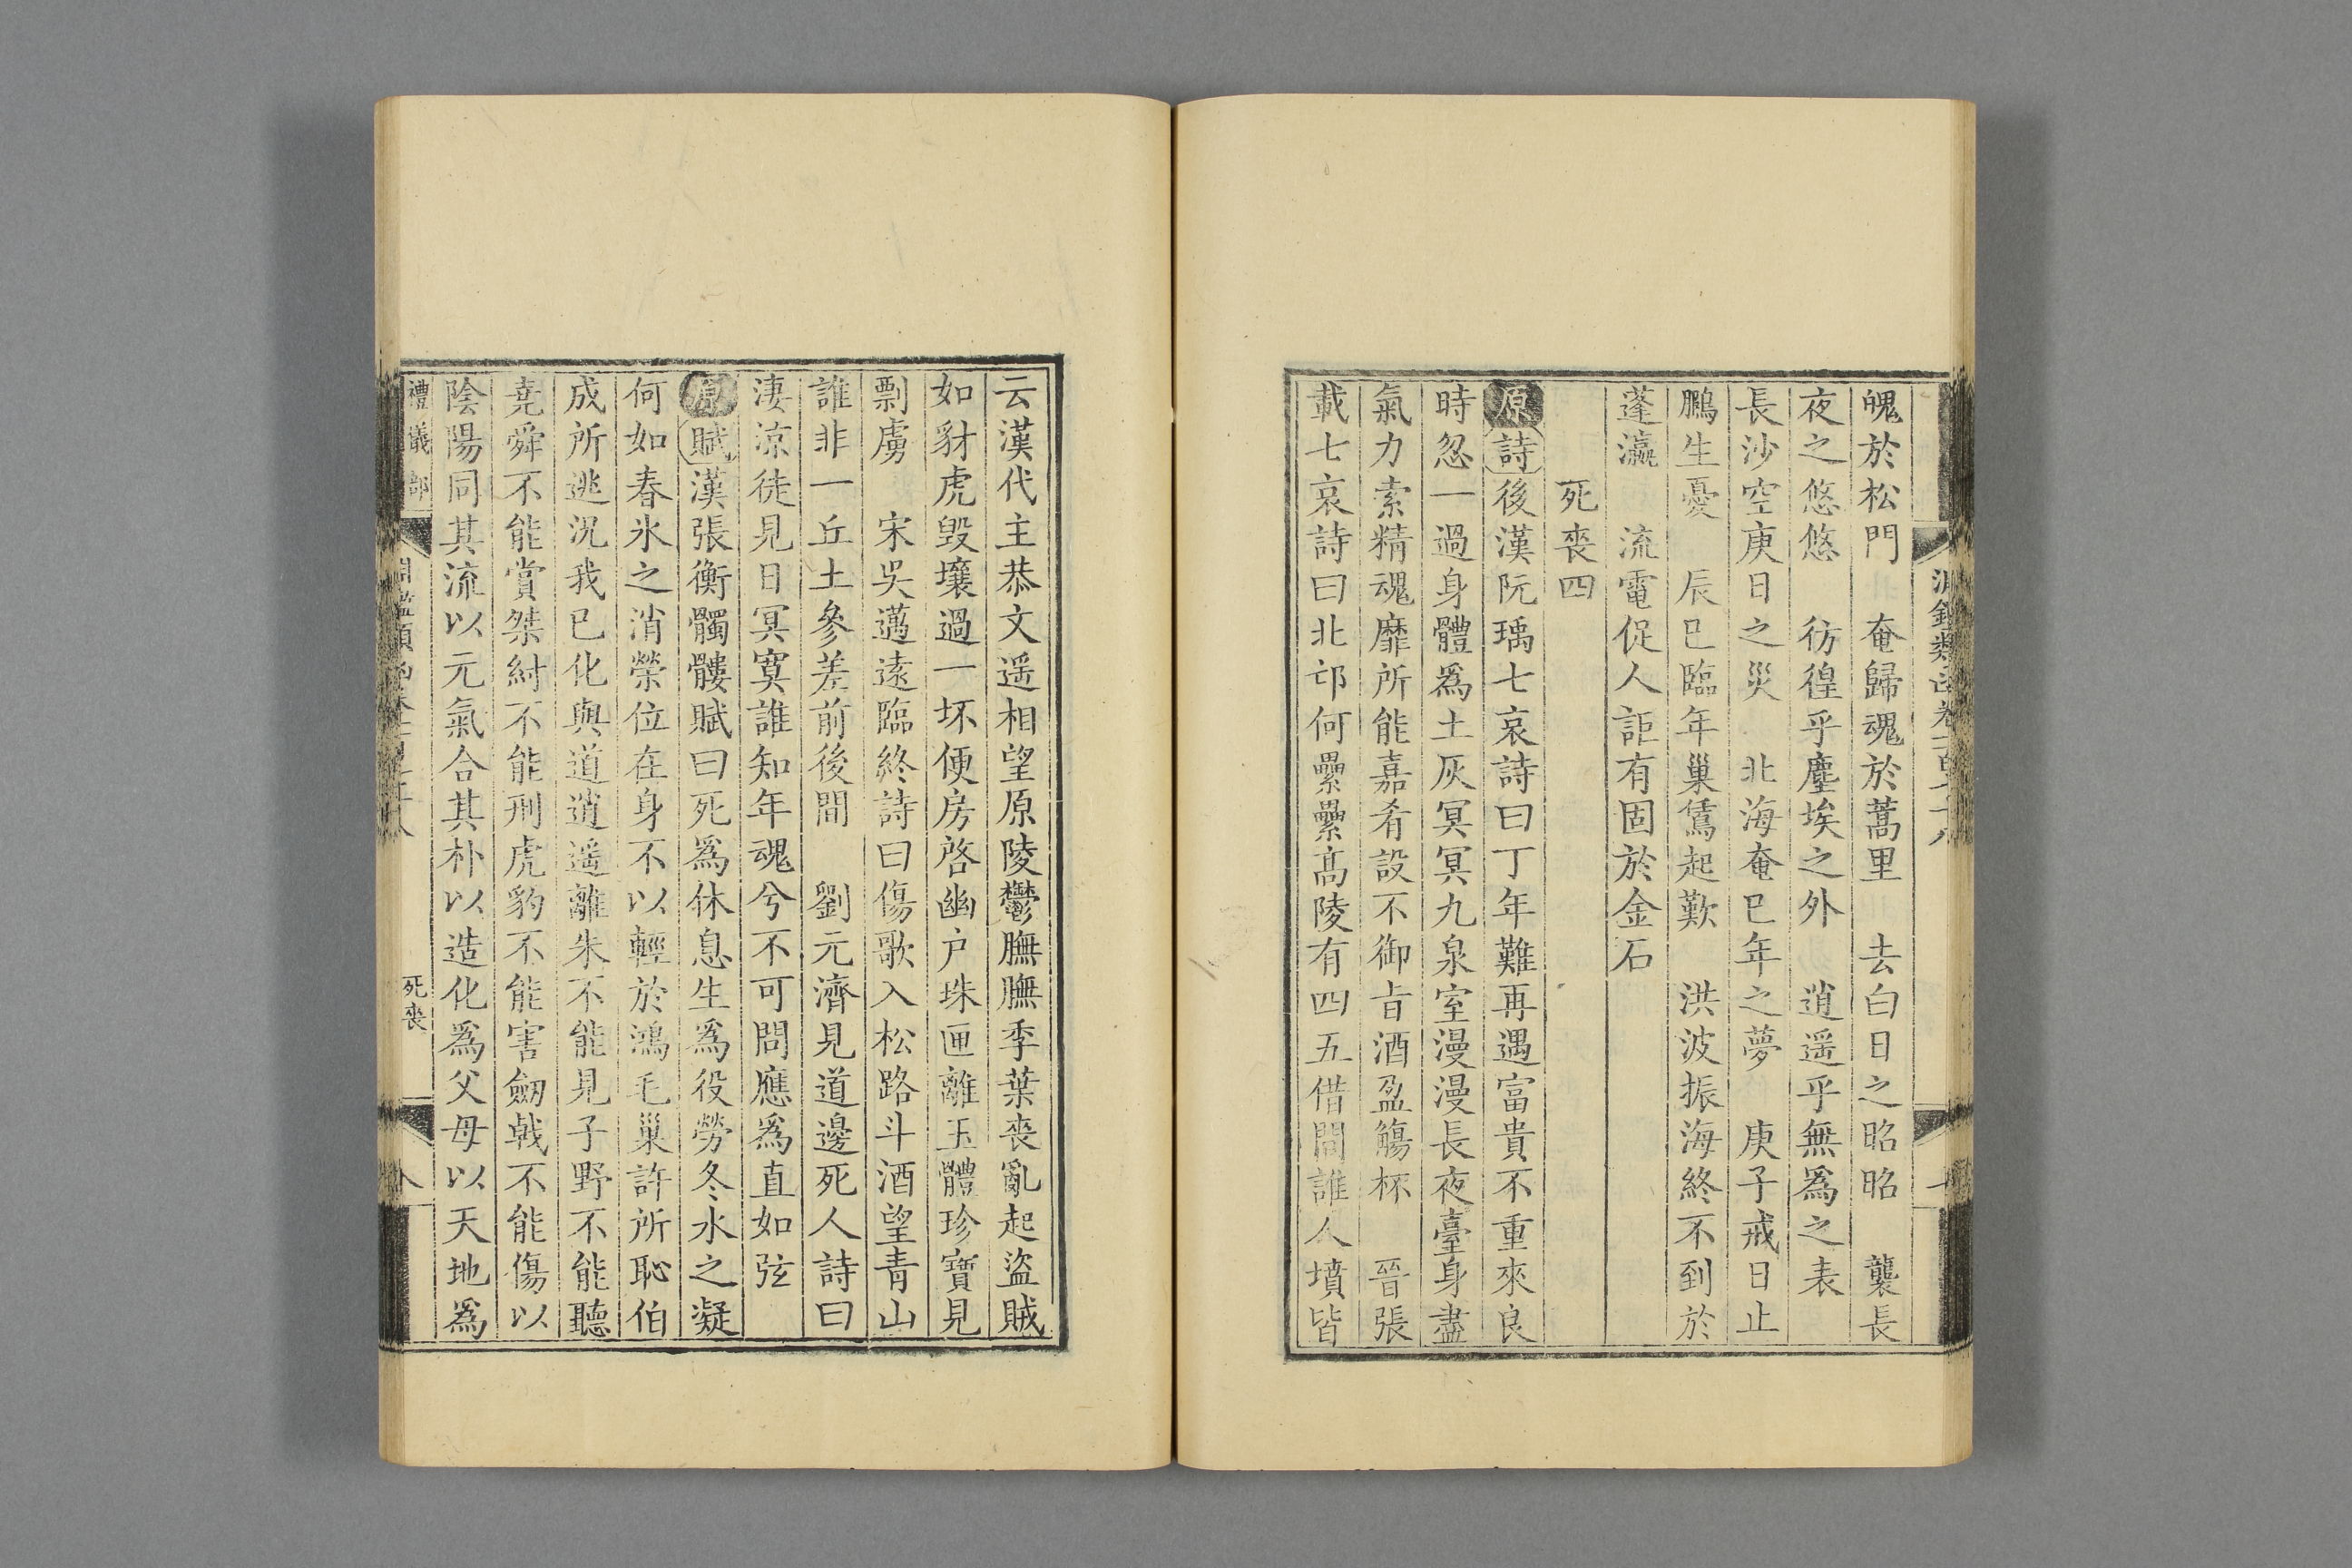 魄於松門　奄歸魂於蒿里　去白日之昭昭　襲長
夜之悠悠　彷徨乎塵埃之外　逍遥乎無爲之表
長沙空庚日之災　北海奄巳年之夢　庚子戒日止
鵬生憂　辰巳臨年巢雋起歎　洪波振海終不到於
蓬瀛　流電促人詎有固於金石
死喪四
原詩後漢阮瑀七哀詩曰丁年難再遇富貴不重來良
時忽一過身體爲土灰冥冥九泉室漫漫長夜臺身盡
氣力索精魂靡所能嘉肴設不御旨酒盈觴杯　晉張
載七哀詩曰北邙何纍纍髙陵有四五借問誰人墳皆
云漢代主恭文遥相望原陵鬱膴膴季葉喪亂起盜賊
如豺虎毀壤過一坏便房啓幽户珠匣離玉體珍寶見
剽虜　宋吳邁遠臨終詩曰傷歌入松路斗酒望青山
誰非一丘土參差前後間　劉元濟見道邊死人詩曰
淒涼徒見日冥寞誰知年魂兮不可問應爲直如弦
原賦漢張衡髑髏賦曰死爲休息生爲役勞冬水之凝
何如春氷之消榮位在身不以輕於鴻毛巢許所恥伯
成所逃況我已化與道逍遥離朱不能見子野不能聽
堯舜不能賞桀紂不能刑虎豹不能害劒戟不能傷以
陰陽同其流以元氣合其朴以造化爲父母以天地爲
禮儀部
死喪
八